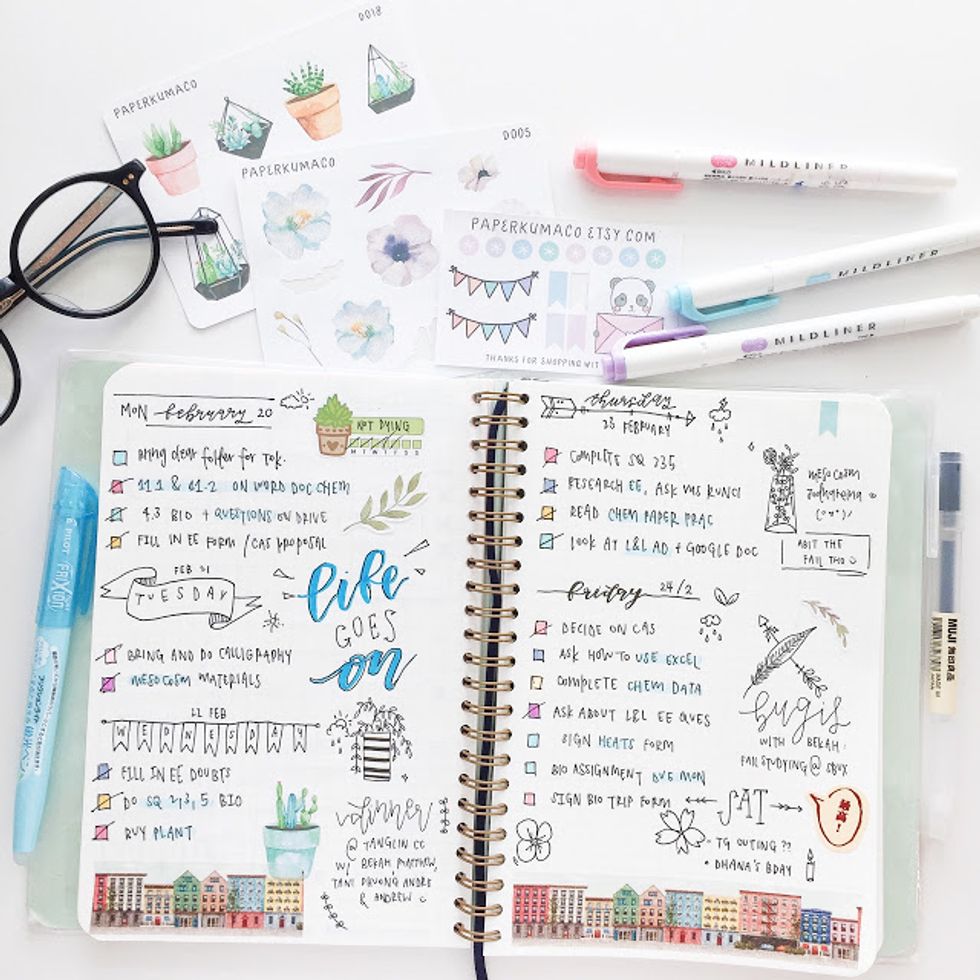 D018
PAPERKUMACO
D005
PAPERKUMACO
PAPERKUMACO.ETSY.COM
THANKS FOR SHOPPING WIT
MILDLINER
MILDLINER
MILDLINER
PILOT FRIXION
MUJI 無印良品
MON February 20
NOT DYING
M T W T F S S
bring clear folder for tok.
11.1 & 11.2 ON WORD DOC CHEM
4.3 BIO + QUESTIONS ON DRIVE
FILL IN EE FORM / CAS PROPOSAL
FEB 21
TUESDAY
life
GOES
on
BRING AND DO CALLIGRAPHY
MESOCOSM MATERIALS
22 FEB
WEDNESDAY
FILL IN EE DOUBTS
DO SQ 2,3,5 BIO
BUY PLANT
volunteer
@ TANGLIN CC
W/ REKAH, MATTHEW,
TANI, DHUONG, ANDRE
& ANDREW
thursday
23 FEBRUARY
COMPLETE SQ 235
RESEARCH EE, ASK MS KUNCI
READ CHEM PAPER PRAC
LOOK AT L&L AD + GOOGLE DOC
mesocosm
ABIT THE
FAIL THO
friday 24/2
DECIDE ON CAS
ASK HOW TO USE EXCEL
COMPLETE CHEM DATA
ASK ABOUT L&L EE QUES
SIGN HEATS FORM
BIO ASSIGNMENT DUE MON
SIGN BIO TRIP FORM
bugis
WITH BEKAH:
FAIL STUDYING @ SBUX
SAT
- TG OUTING ??
• DHANA'S BDAY
最高!